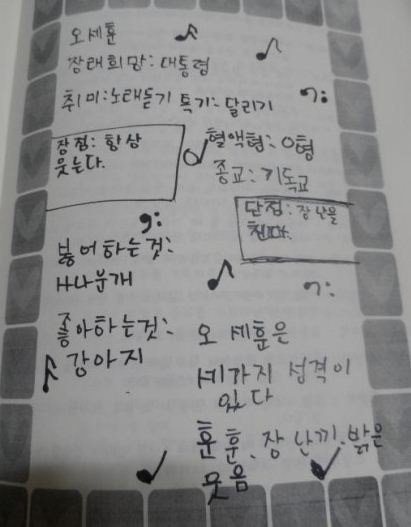 오세훈
장래희망: 대통령
취미: 노래듣기 특기: 달리기
장점: 항상
웃는다.
혈액형: O형
종교: 기독교
단점: 장난을
친다.
싫어하는것:
사나운개
좋아하는것:
강아지
오 세훈은
세가지 성격이
있다
훈훈, 장난끼, 밝은
웃음